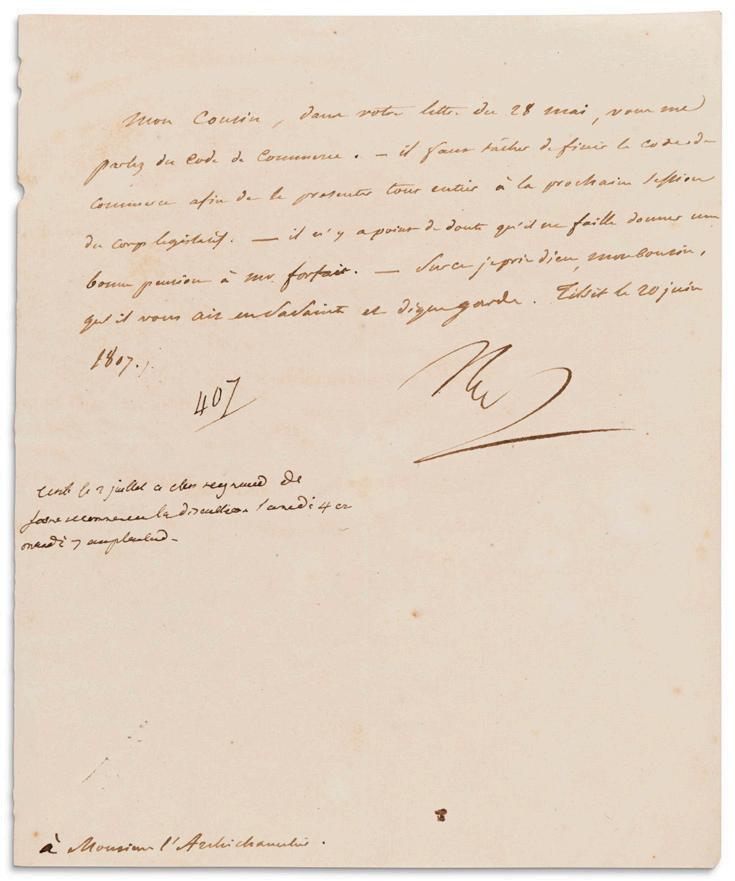 Mon Cousin, dans votre lettre du 28 mai, vous me
parlez du Code de Commerce. — il faut tâcher de finir le code de
commerce afin de le presenter tout entier à la prochaine session
du corps legislatif. — il n'y a point de doute qu'il ne faille donner une
bonne pension à mr. forfait. — Sur ce je prie dieu, mon Cousin,
qu'il vous ait en sa Sainte et digne garde. Tilsit le 20 juin
1807.
407
Nap
le 2 juillet a Mr regnaud de
faire recommencer la discussion Samedi 4 et
mardi 7
à Monsieur l'Archichancelier.